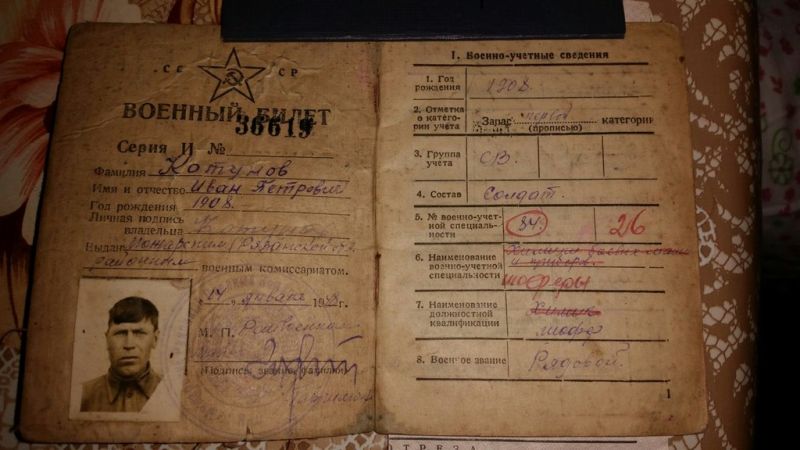 СССР
ВОЕННЫЙ БИЛЕТ
Серия И № 36619
Фамилия Котунов
Имя и отчество Иван Петрович
Год рождения 1908
Личная подпись
владельца
Выдан Рязанской
районным
военным комиссариатом.
"14" января 194 г.
М. П. Райвоенком
(Подпись, звание, фамилия)
I. Военно-учетные сведения
1. Год рождения 1908.
2. Отметка о категории учета Запас первой категории
(прописью)
3. Группа учета СВ.
4. Состав Солдат.
5. № военно-учетной специальности 34. 26
6. Наименование военно-учетной специальности шоферы
7. Наименование должностной квалификации Химик шофер
8. Военное звание Рядовой.
1
ОТРЕЗА